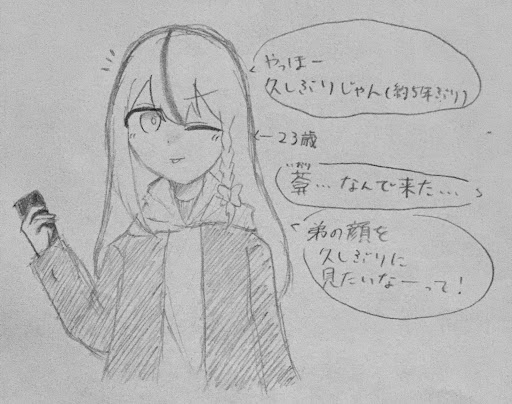 やっほー
久しぶりじゃん(約5年ぶり)
←23歳
…なんで来た…
弟の顔を
久しぶりに
見たいなーって!